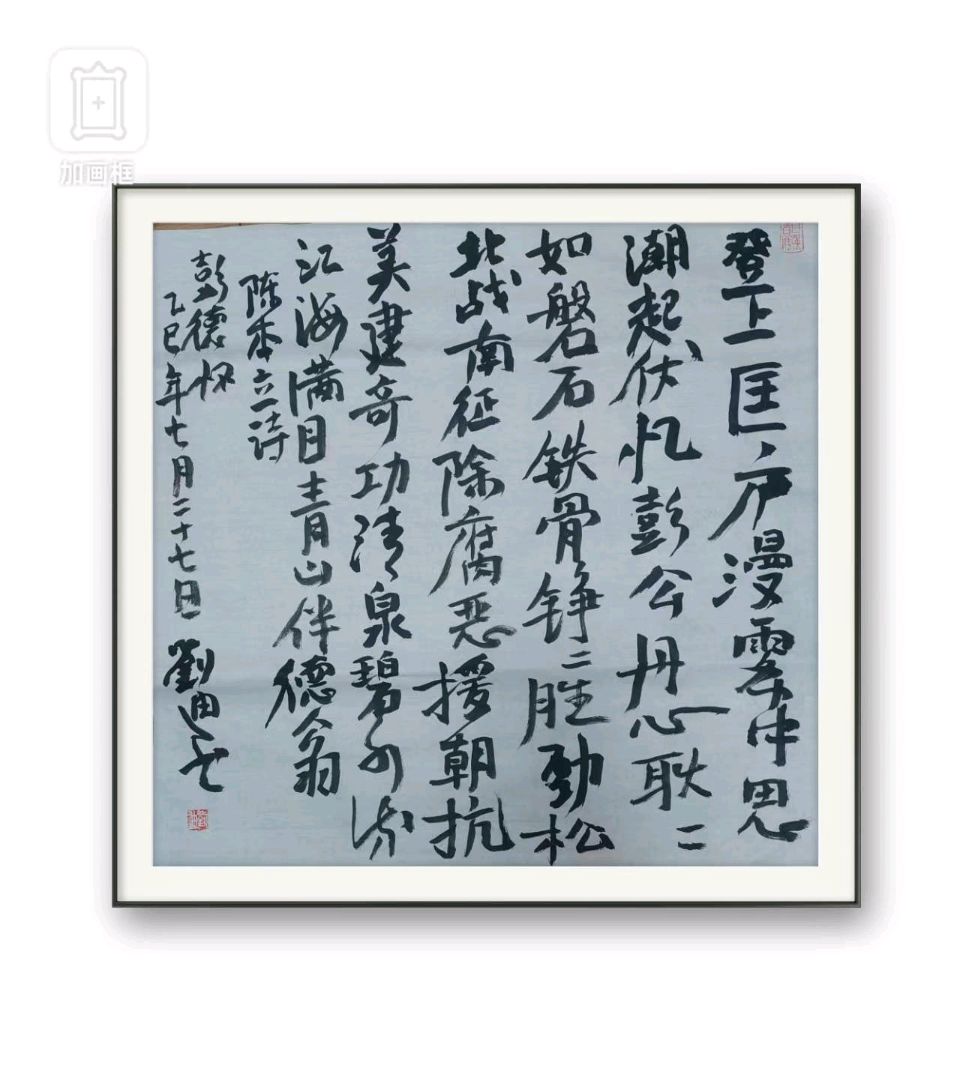 加画框
登上匡庐漫雾中思
潮起伏忆彭公丹心耿二
如磐石铁骨铮二胜劲松
北战南征除腐恶援朝抗
美建奇功清泉碧
江海满目青山伴德翁
陈本立诗
彭德怀
乙巳年七月二十七日 劉迪